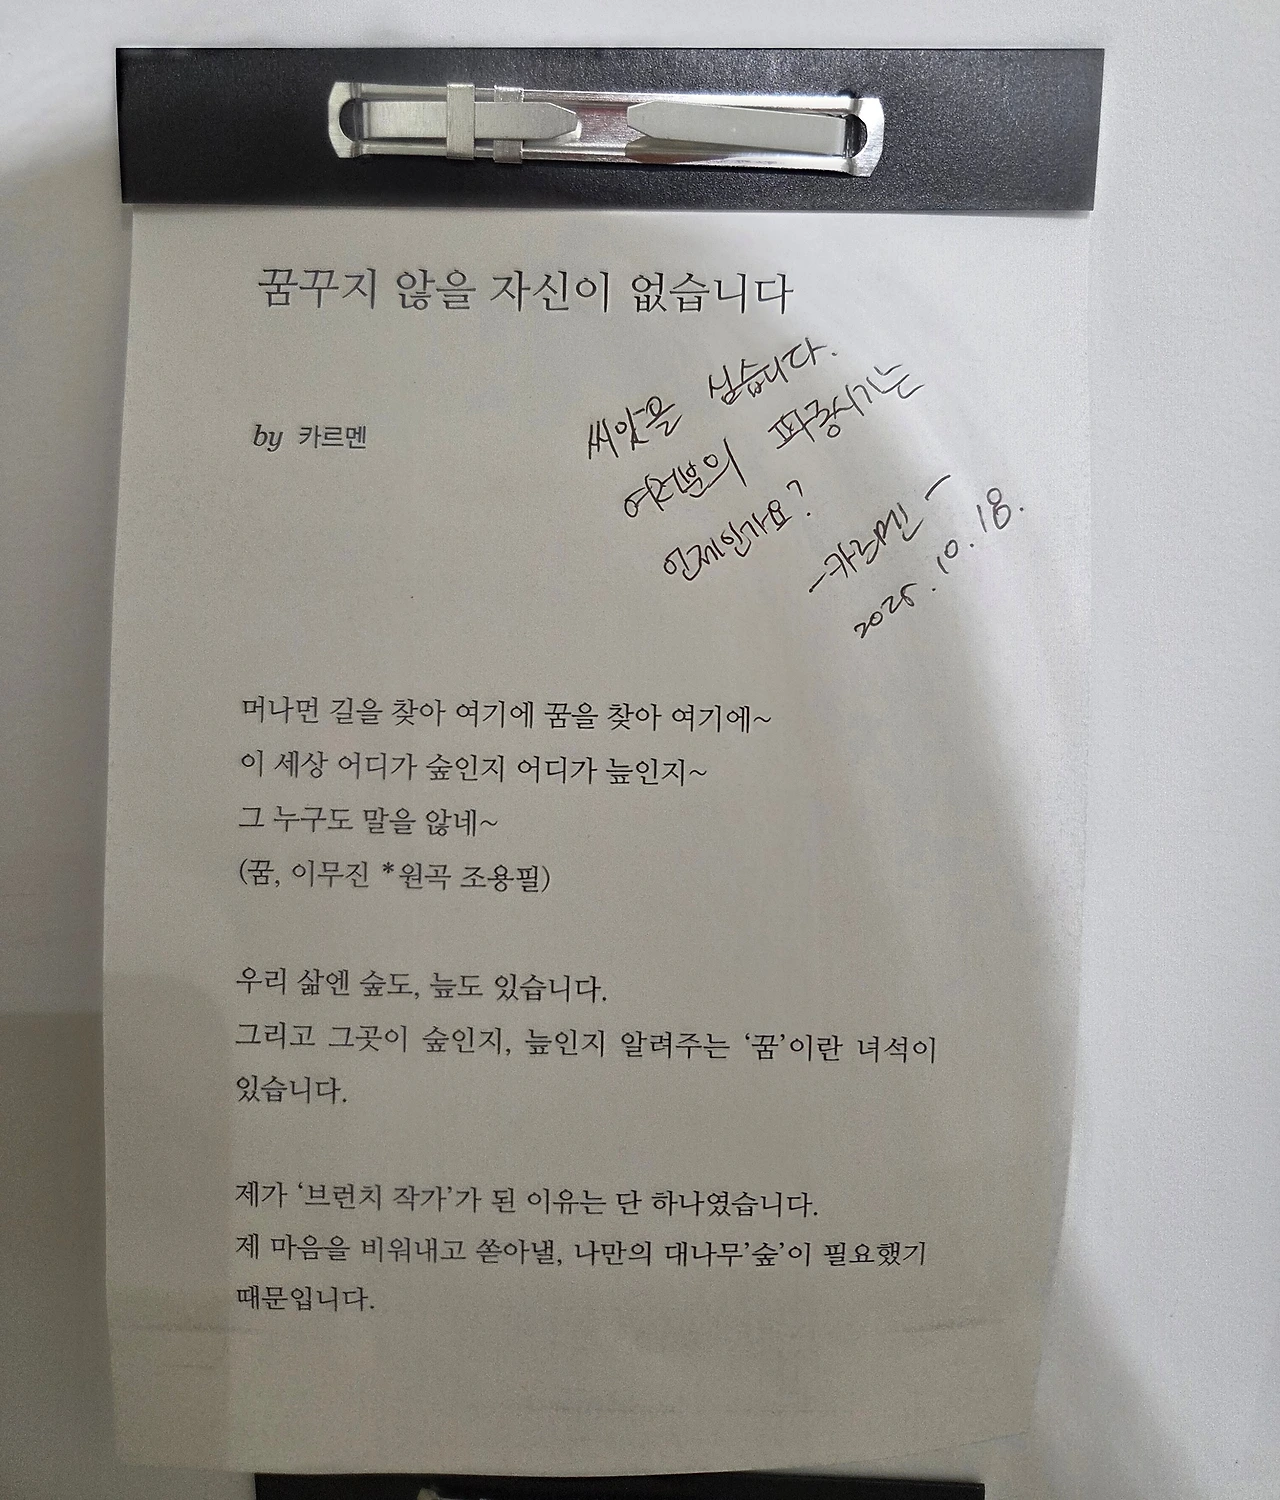 꿈꾸지 않을 자신이 없습니다
by 카르멘
씨앗을 심습니다.
여러분의 파종시기는
언제인가요?
-카르멘-
2025.10.18.
머나먼 길을 찾아 여기에 꿈을 찾아 여기에~
이 세상 어디가 숲인지 어디가 늪인지~
그 누구도 말을 않네~
(꿈, 이무진 *원곡 조용필)
우리 삶엔 숲도, 늪도 있습니다.
그리고 그곳이 숲인지, 늪인지 알려주는 ‘꿈’이란 녀석이
있습니다.
제가 ‘브런치 작가’가 된 이유는 단 하나였습니다.
제 마음을 비워내고 쏟아낼, 나만의 대나무’숲’이 필요했기
때문입니다.